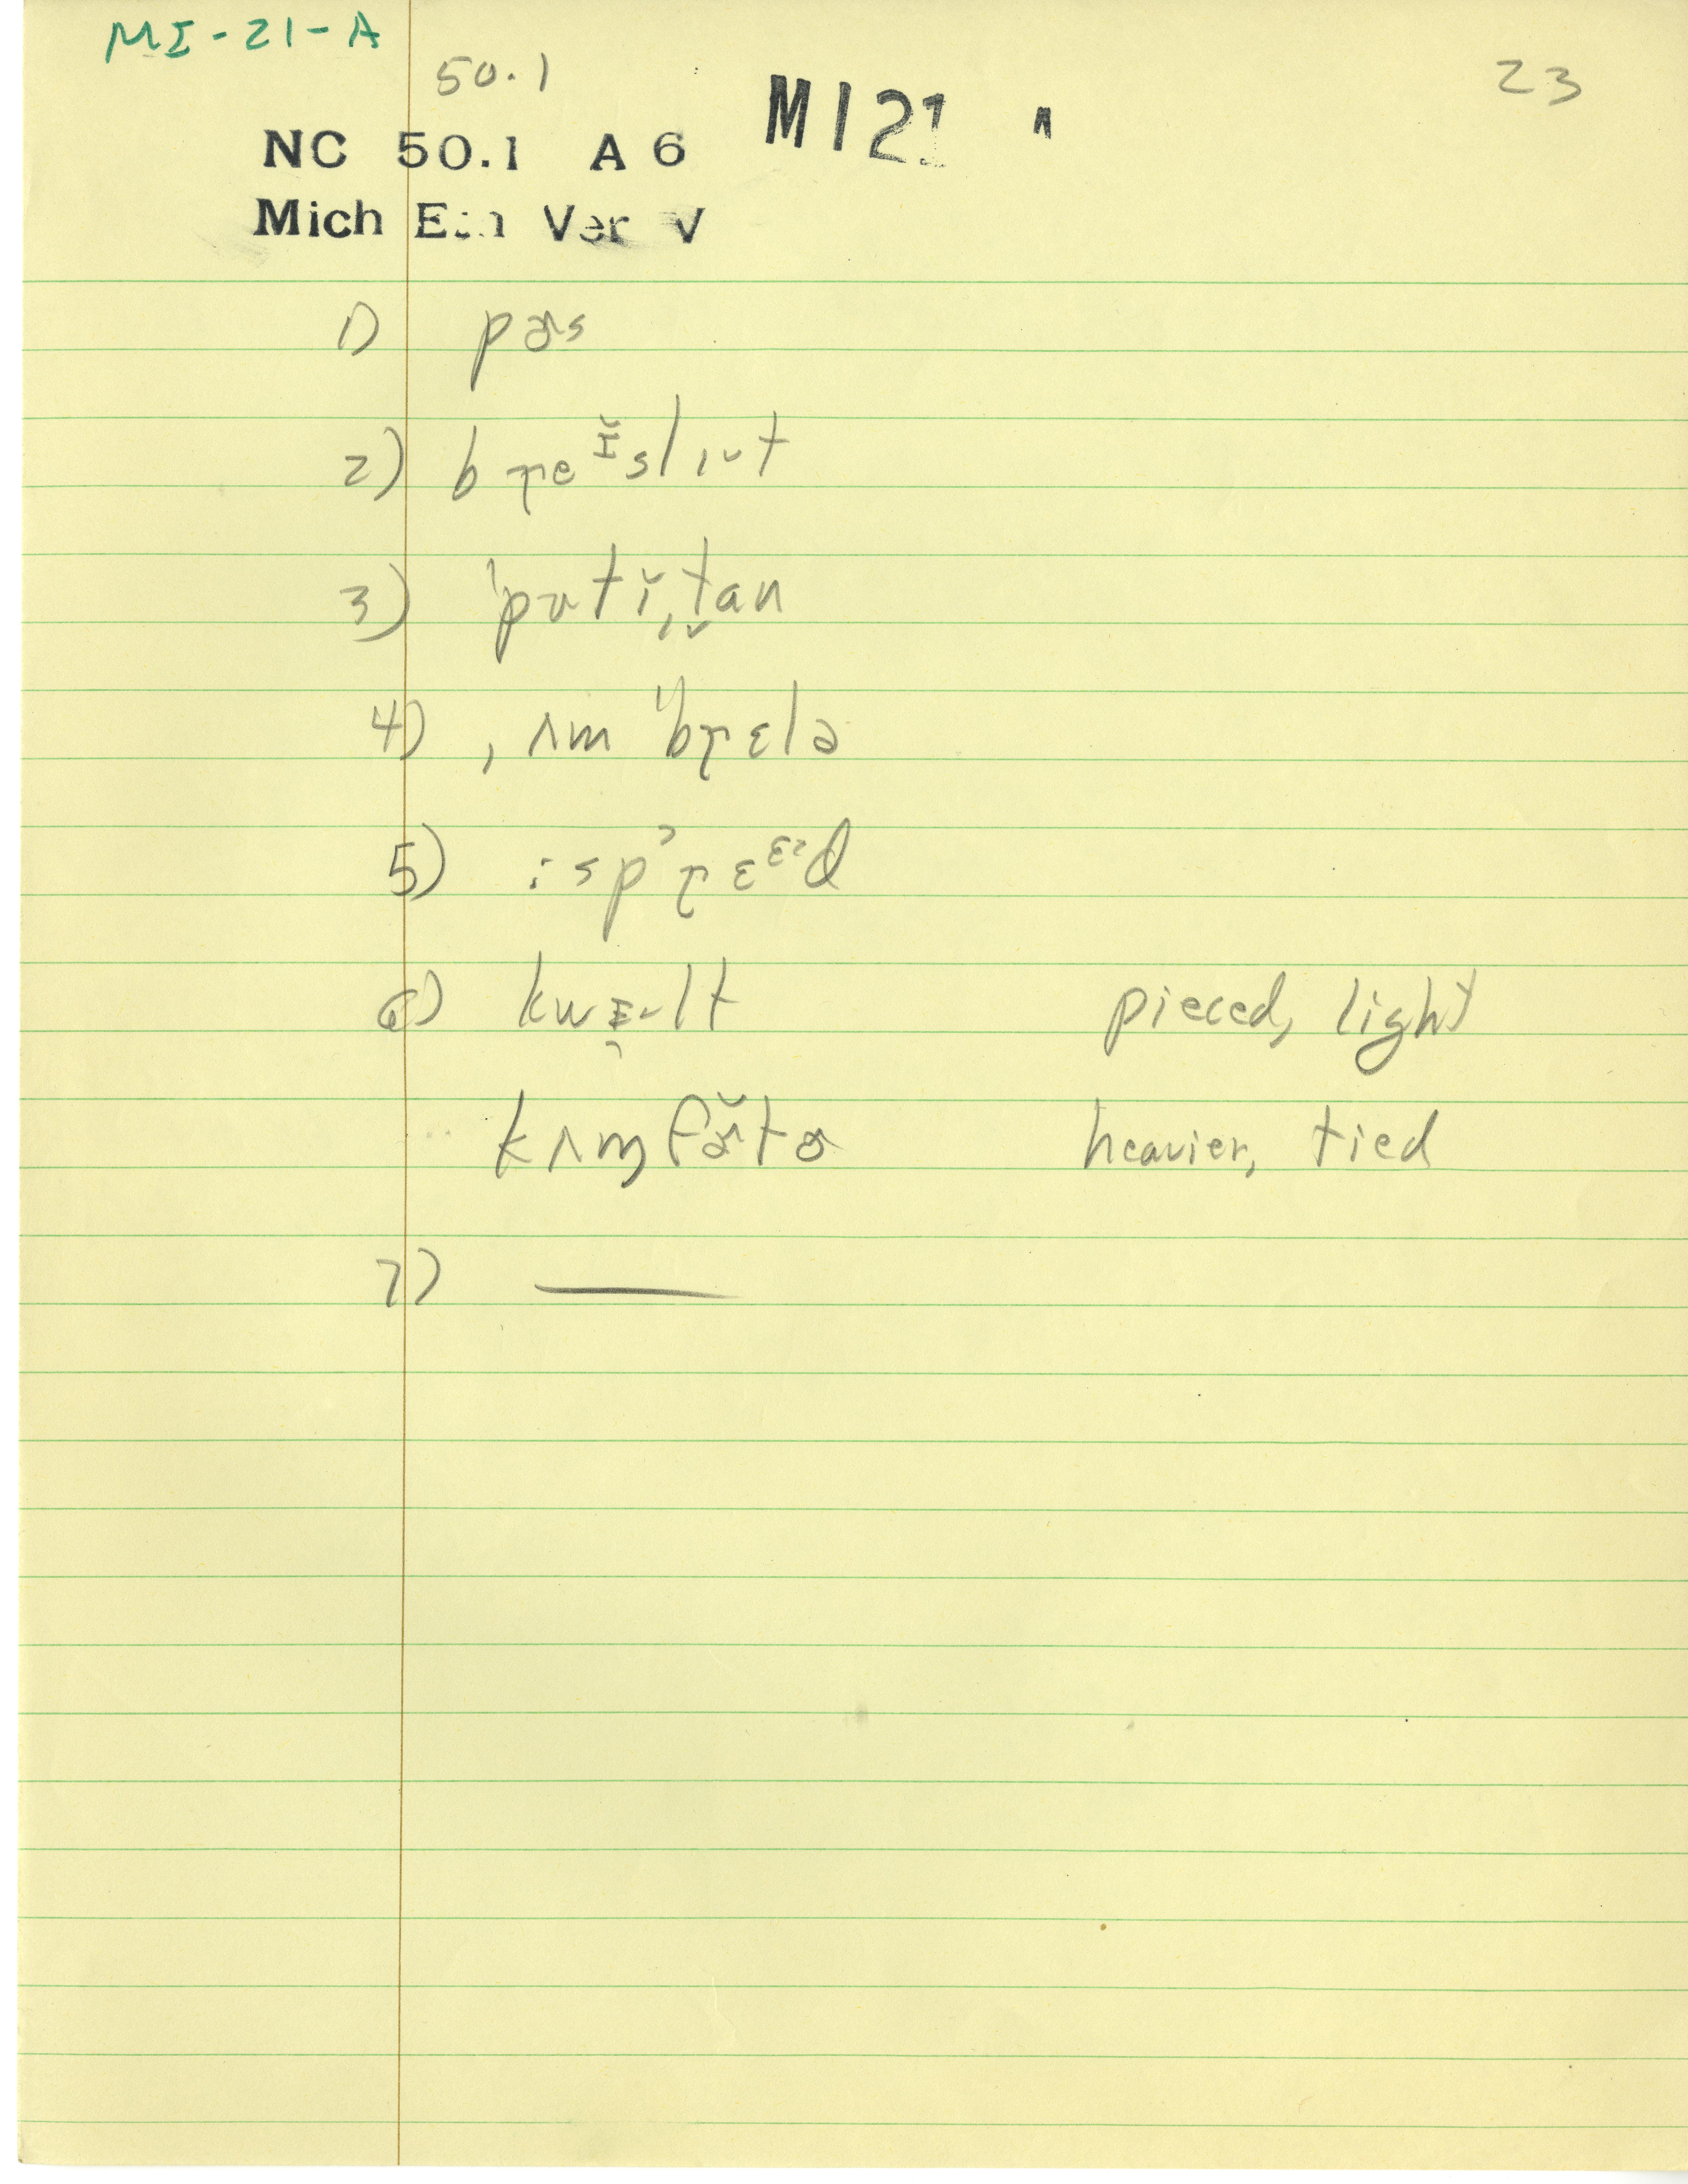 MI-21-A
50.1
23
NC 50.1 A 6 MI 21 A
Mich Ver V
1) pɚs
2) bɽeɪ̆slɪ˅t
3) ˈpʊtĭˌt̬an
4) ˌʌmˈbɽɛlə
5) :spʾɽɛᵋᶾd
6) kwɪ˅lt pieced, light
kʌɱfɚ̆tɚ heavier, tied
7) —